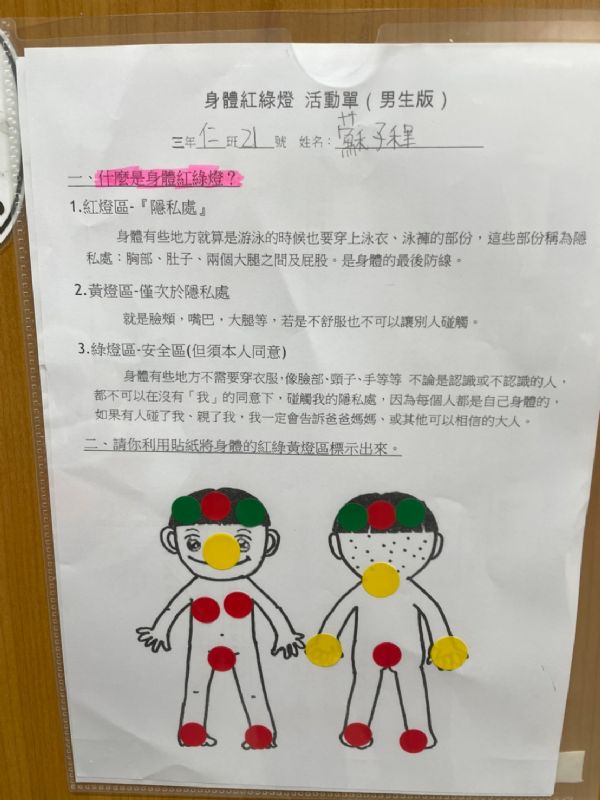 身體紅綠燈 活動單（男生版）
三年仁班21號 姓名：蘇子程
一、什麼是身體紅綠燈？
1.紅燈區-『隱私處』
身體有些地方就算是游泳的時候也要穿上泳衣、泳褲的部份，這些部份稱為隱
私處：胸部、肚子、兩個大腿之間及屁股。是身體的最後防線。
2.黃燈區-僅次於隱私處
就是臉頰，嘴巴，大腿等，若是不舒服也不可以讓別人碰觸。
3.綠燈區-安全區(但須本人同意)
身體有些地方不需要穿衣服,像臉部、頸子、手等等 不論是認識或不認識的人，
都不可以在沒有「我」的同意下，碰觸我的隱私處，因為每個人都是自己身體的，
如果有人碰了我、親了我，我一定會告訴爸爸媽媽、或其他可以相信的大人。
二、請你利用貼紙將身體的紅綠黃燈區標示出來。